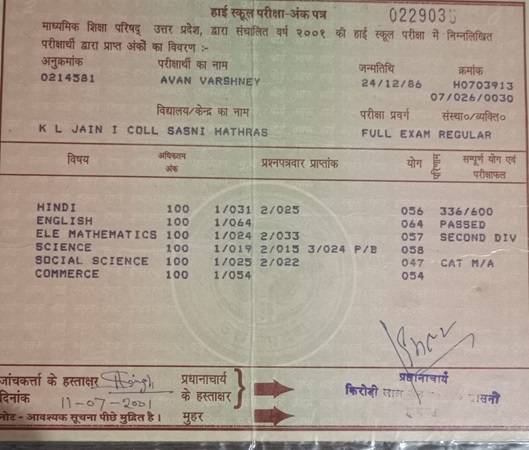 हाई स्कूल परीक्षा-अंक पत्र
022903
माध्यमिक शिक्षा परिषद् उत्तर प्रदेश, द्वारा संचालित वर्ष २००१ की हाई स्कूल परीक्षा में निम्नलिखित
परीक्षार्थी द्वारा प्राप्त अंकों का विवरण :-
अनुक्रमांक परीक्षार्थी का नाम जन्मतिथि क्रमांक
0214581 AVAN VARSHNEY 24/12/86 H0703913
07/026/0030
विद्यालय/केन्द्र का नाम परीक्षा प्रवर्ग संस्था०/व्यक्ति०
K L JAIN I COLL SASNI HATHRAS FULL EXAM REGULAR
विषय अधिकतम अंक प्रश्नपत्रवार प्राप्तांक योग परिणाम सम्पूर्ण योग एवं परीक्षाफल
HINDI 100 1/031 2/025 056 336/600
ENGLISH 100 1/064 064 PASSED
ELE MATHEMATICS 100 1/024 2/033 057 SECOND DIV
SCIENCE 100 1/019 2/015 3/024 P/B 058
SOCIAL SCIENCE 100 1/025 2/022 047 CAT M/A
COMMERCE 100 1/054 054
जांचकर्ता के हस्ताक्षर प्रधानाचार्य के हस्ताक्षर
प्रधानाचार्य
किरोड़ी लाल
दिनांक 11-07-2001
नोट - आवश्यक सूचना पीछे मुद्रित है। मुहर